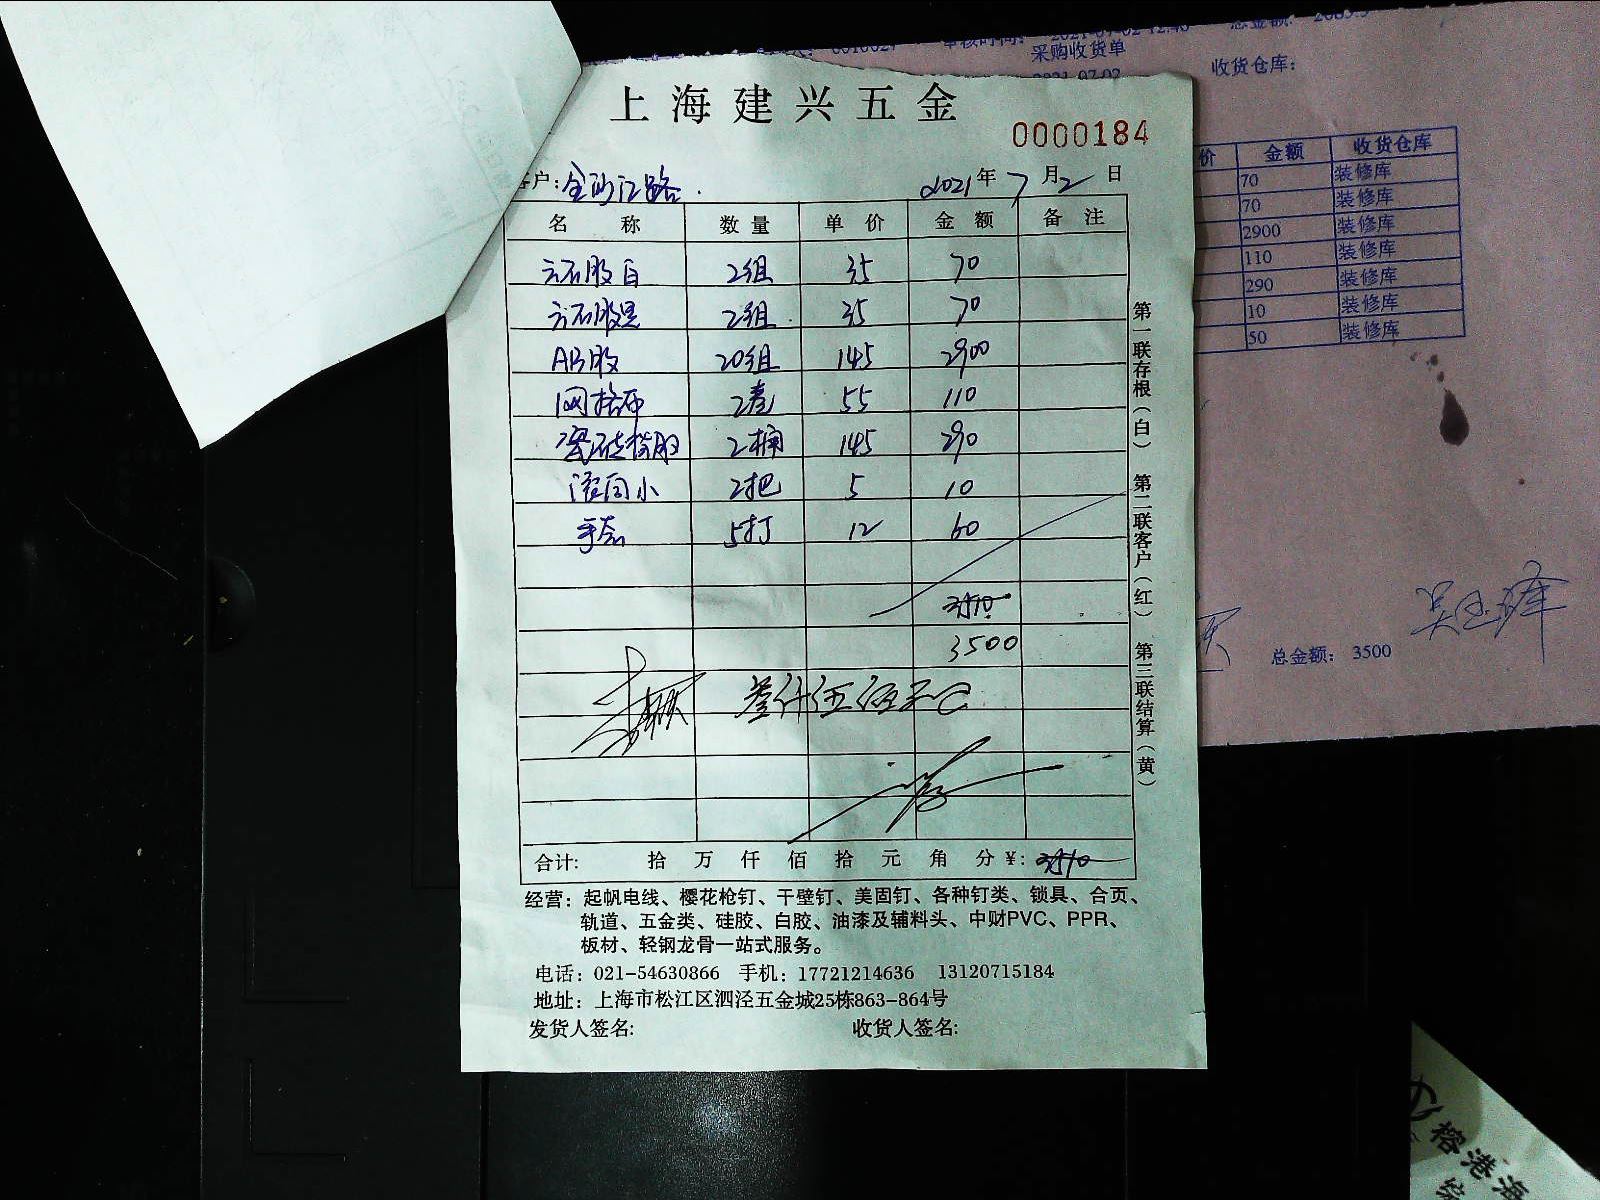 上海建兴五金
0000184
客户：金沙江路
2021年7月2日
名称 数量 单价 金额 备注
云石胶白 2组 35 70
云石胶黑 2组 35 70
AB胶 20组 145 2900
网格布 2卷 55 110
瓷砖背胶 2桶 145 290
滚筒小 2把 5 10
手套 5打 12 60
3510
3500
叁仟伍佰元
合计： 拾 万 仟 佰 拾 元 角 分 ¥：3510
第一联存根（白） 第二联客户（红） 第三联结算（黄）
经营：起帆电线、樱花枪钉、干壁钉、美固钉、各种钉类、锁具、合页、
轨道、五金类、硅胶、白胶、油漆及辅料头、中财PVC、PPR、
板材、轻钢龙骨一站式服务。
电话：021-54630866 手机：17721214636 13120715184
地址：上海市松江区泗泾五金城25栋863-864号
发货人签名： 收货人签名：
采购收货单
收货仓库：
价 金额 收货仓库
70 装修库
70 装修库
2900 装修库
110 装修库
290 装修库
10 装修库
50 装修库
总金额： 3500
榕港海